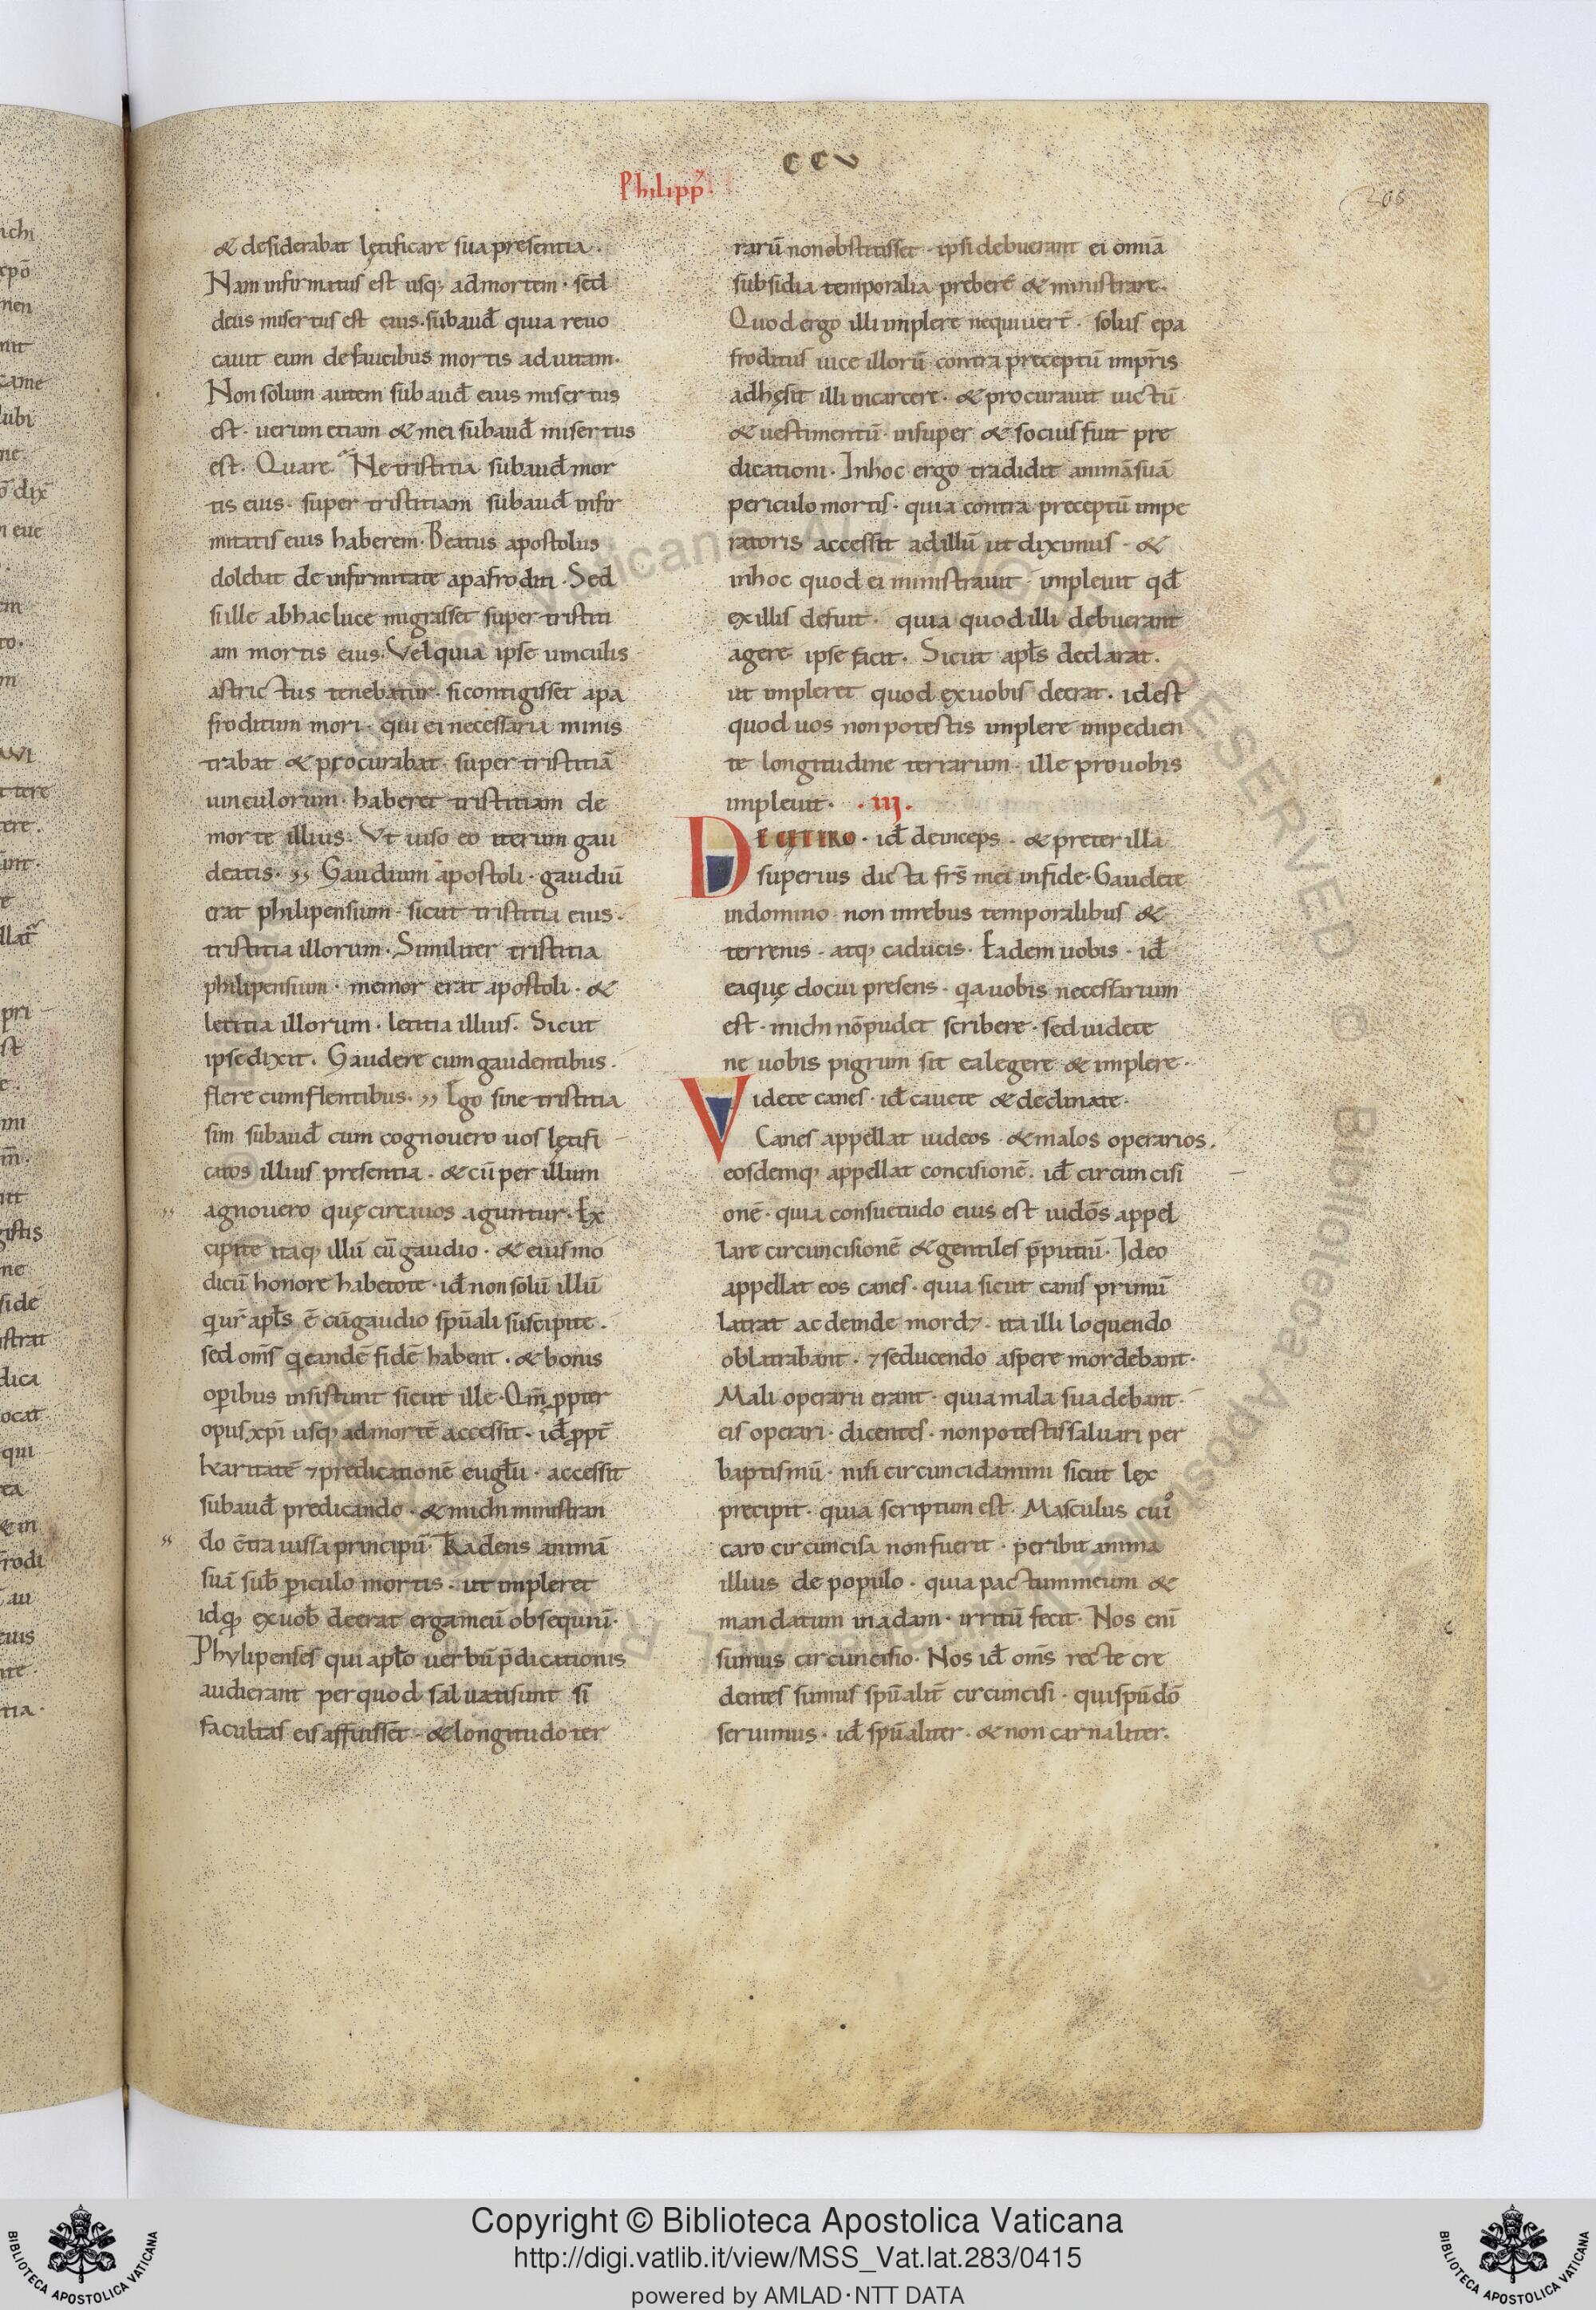 ccv
Philipp̄
205
& desiderabat lętificare sua presentia.
Nam infirmatus est usq; ad mortem. sed
deus misertus est eius. subaud̄ quia reuo
cauit eum de faucibus mortis ad uitam.
Non solum autem subaud̄ eius misertus
est. uerum etiam & mei subaud̄ misertus
est. Quare. Ne tristitia subaud̄ mor
tis eius. super tristitiam subaud̄ infir
mitatis eius haberem. Beatus apostolus
dolebat de infirmitate apafroditi. Sed
si ille ab hac luce migrasset super tristiti
am mortis eius. Vel quia ipse uinculis
astrictus tenebatur. si contigisset apa
froditum mori. qui ei necessaria minis
trabat & procurabat. super tristitiā
uinculorum. haberet tristitiam de
morte illius. Vt uiso eo iterum gau
deatis. ,, Gaudium apostoli. gaudiū
erat philipensium. sicut tristitia eius.
tristitia illorum. Similiter tristitia
philipensium. memor erat apostoli. &
letitia illorum. letitia illius. Sicut
ipse dixit. Gaudere cum gaudentibus.
flere cum flentibus. ,, Ego sine tristitia
sim subaud̄ cum cognouero uos lętifi
catos illius presentia. & cū per illum
agnouero quę circa uos aguntur. Ex
cipite itaq; illū cū gaudio. & eiusmo
dicū honore habetote. id̄ non solū illū
qui ur̄ apl̄s ē cū gaudio sp̄uali suscipite.
sed om̄s qi eandē fidē habent. & bonis
operibus insistunt sicut ille. Qm̄ ppter
opus xp̄i usq; ad mortē accessit. id̄ ppt̄
kxaritatē ⁊ predicationē eugl̄ii. accessit
subaud̄ predicando. & michi ministran
do c̄tra iussa principū. Tradens animā
suā sub̄ piculo mortis. ut impleret
id q; ex uob̄ deerat erga meū obsequiū.
Phylipenses qui apl̄o uerbū p̄dicationis
audierant per quod saluati sunt si
facultas eis affuisset. & longitudo ter
rarū non obstitisset. ipsi debuerant ei omia
subsidia temporalia prebere & ministrare.
Quod ergo illi implere nequiuer̄. solus epa
froditus uice illorū contra preceptū impr̄is
adhęsit illi in carcere. & procurauit uictū
& uestimentū. insuper & socius fuit pre
dicationi. In hoc ergo tradidit animā suā
periculo mortis. quia contra preceptū impe
ratoris accessit ad illū ut diximus. &
in hoc quod ei ministrauit. impleuit qd̄
ex illis defuit. quia quod illi debuerant
agere ipse facit. Sicut apl̄s declarat.
ut impleret quod ex uobis deerat. id est
quod uos non potestis implere impedien
te longitudine terrarum. ille pro uobis
impleuit. . iij.
DE CĘTERO. id̄ deinceps. & preter illa
superius dicta fr̄s mei in fide. Gaudete
in domino. non in rebus temporalibus &
terrenis. atq; caducis. Eadem uobis. id̄
ea quę docui presens. qa uobis necessarium
est. michi nō pudet scribere. sed uidete
ne uobis pigrum sit ea legere & implere.
Videte canes. id̄ cauete & declinate.
Canes appellat iudeos. & malos operarios.
eosdemq; appellat concisionē. id̄ circuncisi
onē. quia consuetudo eius est iudōs appel
lare circuncisionē & gentiles p̄putiū. Ideo
appellat eos canes. quia sicut canis primū
latrat ac deinde mord&. ita illi loquendo
oblatrabant. ⁊ seducendo aspere mordebant.
Mali operarii erant. quia mala suadebant
eis operari. dicentes. non potestis saluari per
baptismū. nisi circuncidamini sicut lex
precipit. quia scriptum est. Masculus cui᷒
caro circuncisa non fuerit. peribit anima
illius de populo. quia pactum meum &
mandatum in adam. irritū fecit. Nos enī
sumus circuncisio. Nos id̄ om̄s recte cre
dentes sumus sp̄ualit̄ circuncisi. qui sp̄u dō
seruimus. id̄ sp̄ualiter. & non carnaliter.
Copyright © Biblioteca Apostolica Vaticana
http://digi.vatlib.it/view/MSS_Vat.lat.283/0415
powered by AMLAD·NTT DATA
BIBLIOTECA APOSTOLICA VATICANA
BIBLIOTECA APOSTOLICA VATICANA